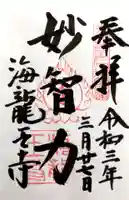 奉拝
令和三年
三月廿七日
妙智力
海龍王寺